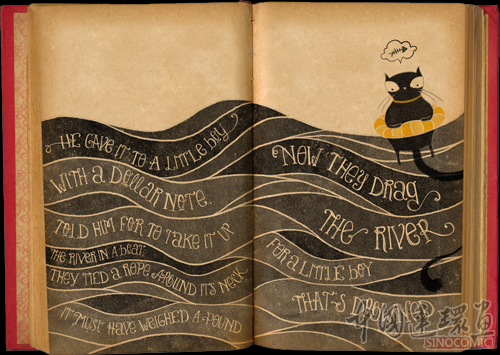 HE GAVE IT TO A LITTLE BOY
WITH A DOLLAR NOTE,
TOLD HIM FOR TO TAKE IT UP
THE RIVER IN A BOAT;
THEY TIED A ROPE AROUND ITS NECK
IT MUST HAVE WEIGHED A POUND
NOW THEY DRAG
THE RIVER
FOR A LITTLE BOY
THAT'S DROWNED
中國軍環畫
SINOCOMIC